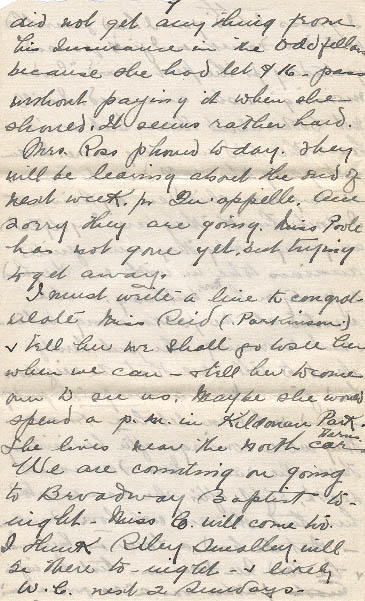 did not get any thing from
his Insurance in the Oddfellow
because she had let $16- pass
without paying it when she
should. It seems rather hard.
Mrs. Ross phoned to day. They
will be leaving about the end of
next week for Qu'appelle. Am
sorry they are going. Miss Poole
has not gone yet, but trying
to get away.
I must write a line to congrat-
ulate Miss Reid (Parkinson)
& tell her we shall go to see her
when we can - & tell her to come
over to see us. Maybe she would
spend a p.m. in Kildonan Park.
She lives near the North car Barns
We are counting on going
to Broadway Baptist to-
night - Miss C. will come too.
I think Riley Smalley will
be there to-night - & likely
W.C. next 2 Sundays -